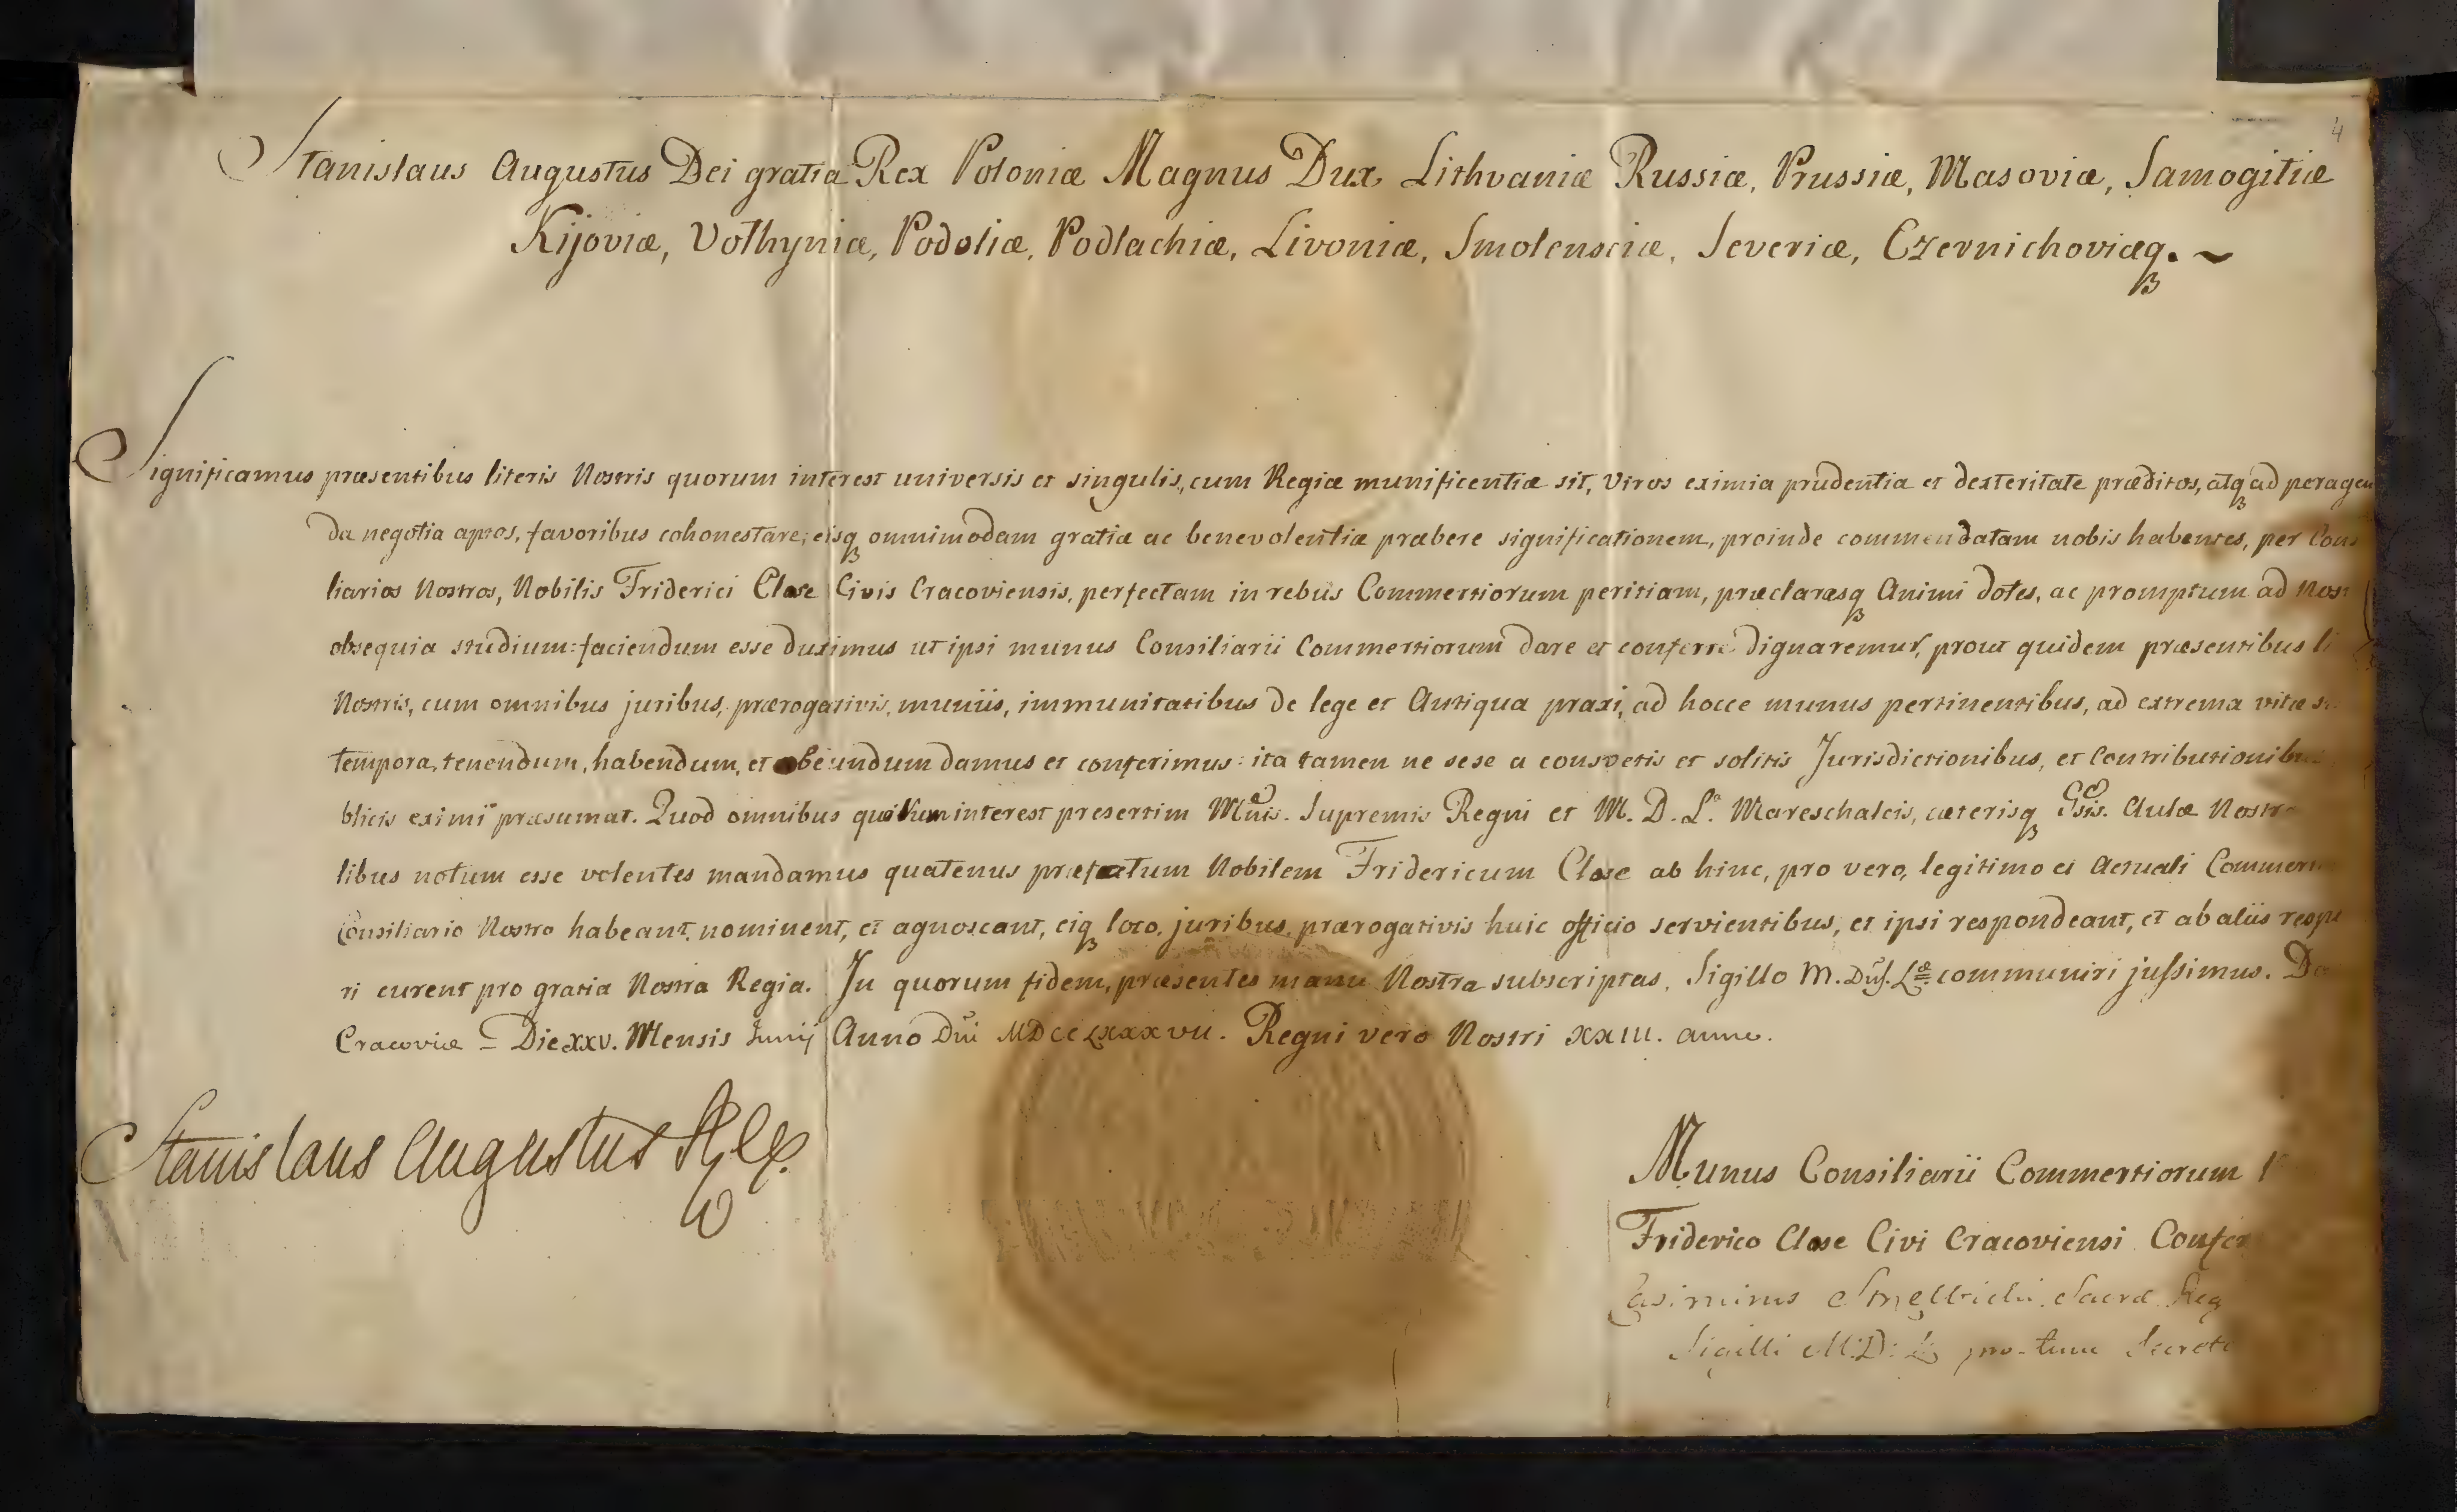 4
Stanislaus Augustus Dei gratia Rex Poloniæ Magnus Dux Lithvaniæ Russiæ, Prussiæ, Masoviæ, Samogitiæ
Kijoviæ, Volhyniæ, Podoliæ, Podlachiæ, Livoniæ, Smolensciæ, Severiæ, Czernichoviæq. ~
Significamus præsentibus literis Nostris quorum interest universis et singulis, cum Regiæ munificentiæ sit, Viros eximia prudentia et dexteritate præditos, atq ad peragen
da negotia aptos, favoribus cohonestare, eisq omnimodam gratiæ ac benevolentiæ præbere significationem, proinde commendatam nobis habentes, per Cons
liarios Nostros, Nobilis Friderici Close Civis Cracoviensis, perfectam in rebus Commertiorum peritiam, præclarasq Animi dotes, ac promptum ad Nost
obsequia studium: faciendum esse duximus ut ipsi munus Consiliarii Commertiorum dare et conferre dignaremur, prout quidem præsentibus li
Nostris, cum omnibus juribus, prærogativis, muniis, immunitatibus de lege et Antiqua praxi, ad hocce munus pertinentibus, ad extrema vitæ s
tempora, tenendum, habendum, et obeundum damus et conferimus: ita tamen ne sese a consvetis et solitis Jurisdictionibus, et Contributionibus
blicis eximi præsumat. Quod omnibus quorum interest presertim Mgnis. Supremis Regni et M. D. L. Mareschalcis, cæterisq Gsis. Aulæ Nostræ
libus notum esse volentes mandamus quatenus præfatum Nobilem Fridericum Close ab hinc, pro vero, legitimo et Actuali Commerti
Consiliario Nostro habeant, nominent, et agnoscant, eiq loco, juribus, prærogativis huic officio servientibus, et ipsi respondeant, et ab aliis respo
ri curent pro gratia Nostra Regia. In quorum fidem, præsentes manu Nostra subscriptas, Sigillo M. Dus. Læ communiri jussimus. Da
Cracoviæ Die XXV. Mensis Junij Anno Dni MDCCLXXXVII. Regni vero Nostri XXIII. anno.
Stanislaus Augustus Rex
Munus Consiliarii Commertiorum
Friderico Close Civi Cracoviensi Confer
Casimirus Sacræ Reg
Sigilli M: D: L pro-tunc Secret